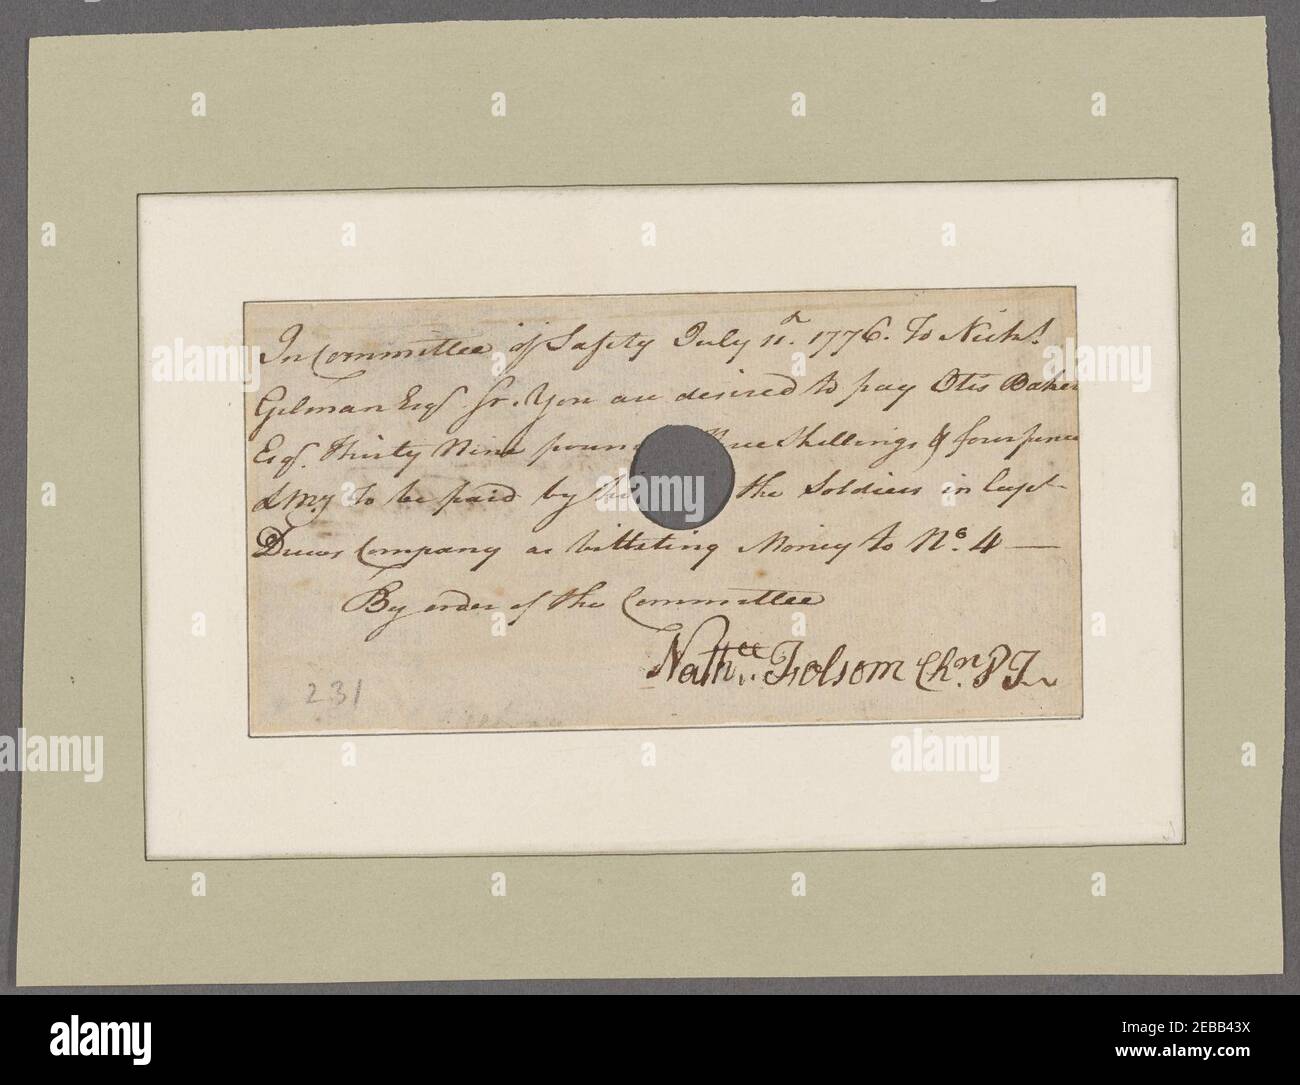 In Committee of Safety July 11th 1776. To Nichs
Gilman Esqr Sr. You are desired to pay Otis Baker
Esqr. Thirty Nine poun Shillings & fourpence
LMy to be paid by hi the Soldiers in Capt
Drews Company as billeting Money to No. 4 —
By order of the Committee
Nathll Folsom Chn P T
231
alamy
Image ID: 2EBB43X
www.alamy.com